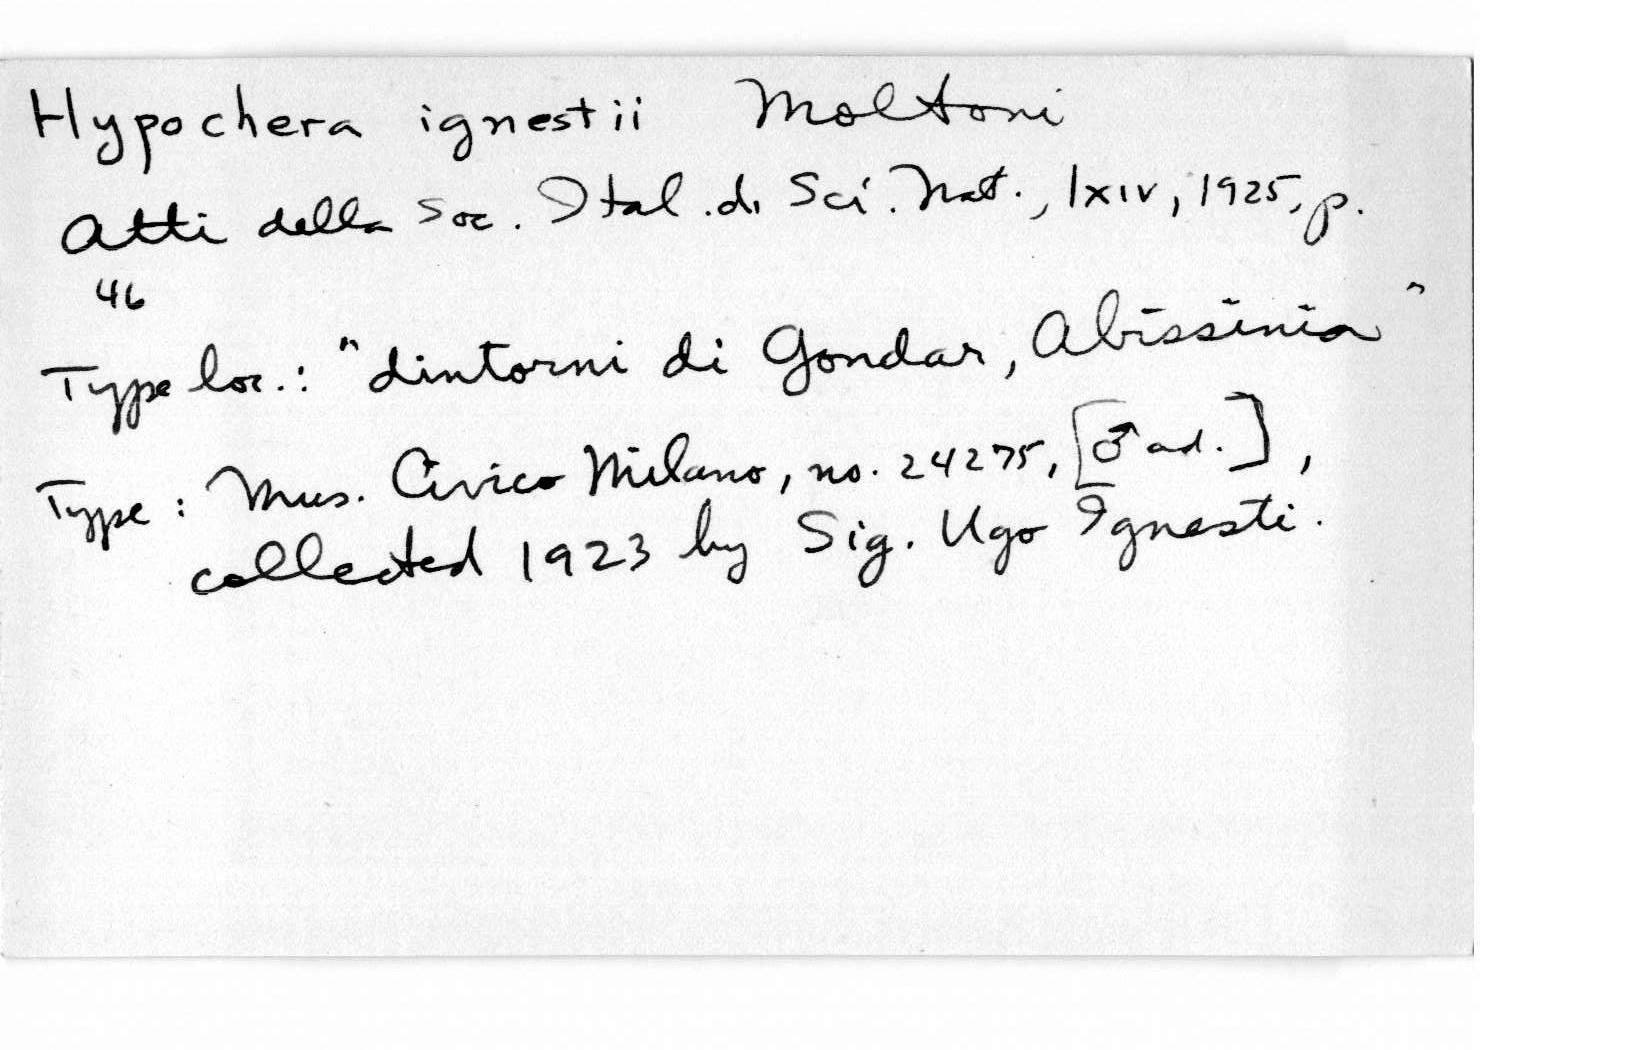 Hypochera ignestii Moltoni
Atti della Soc. Ital. di Sci. Nat., lxiv, 1925, p.
46
Type loc.: "dintorni di Gondar, Abissinia"
Type: Mus. Civico Milano, no. 24275, [♂ ad.],
collected 1923 by Sig. Ugo Ignesti.